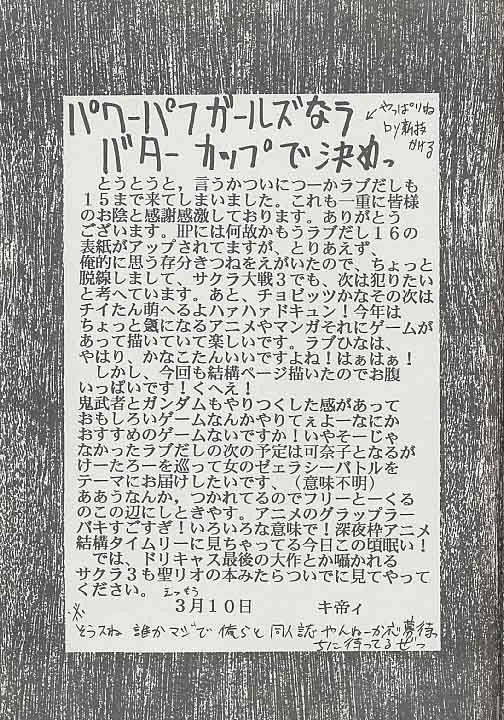 パワーパフガールズなラ
バターカップで決めっ
やっぱりね
とうとうと，言うかついにつーかラブだしも
１５まで来てしまいました。これも一重に皆様
のお陰と感謝感激しております。ありがとう
ございます。HPには何故かもうラブだし１６の
表紙がアップされてますが、とりあえず、
俺的に思う存分きつねをえがいたので、ちょっと
脱線しまして、サクラ大戦３でも、次は犯りたい
と考へています。あと、チョビッツかなその次は
チイたん萌へるよハァハァドキュン！今年は
ちょっと気になるアニメやマンガそれにゲームが
あって描いていて楽しいです。ラブひなは、
やはり、かなこたんいいですよね！はぁはぁ！
しかし、今回も結構ページ描いたのでお腹
いっぱいです！くへえ！
鬼武者とガンダムもやりつくした感があって
おもしろいゲームなんかやりてぇよーなにか
おすすめのゲームないですか！いやそーじゃ
なかったラブだしの次の予定は可奈子となるが
けーたろーを巡って女のゼェラシーバトルを
テーマにお届けしたいです、（意味不明）
ああうなんか，つかれてるのでフリーとーくる
のこの辺にしときやす。アニメのグラップラー
バキすごすぎ！いろいろな意味で！深夜枠アニメ
結構タイムリーに見ちゃってる今日この頃眠い！
では、ドリキャス最後の大作とか囁かれる
サクラ３も聖リオの本みたらついでに見てやって
ください。
３月１０日　キ帝ィ
そうスね 誰かマジで俺らと同人誌やんねーか応募待っ
ちに待ってるぜっ